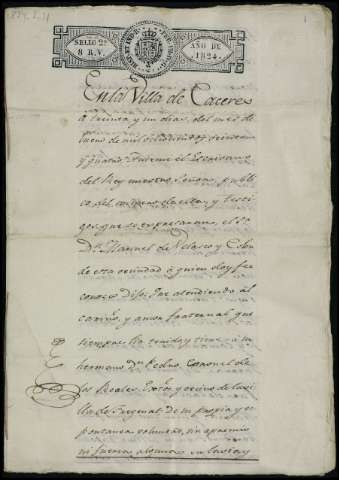 SELLO 2º
8 R.V.
AÑO DE
1824.
En la Villa de Caceres
a treinta y un dias del mes de
Enero de mil ochocientos veinte
y quatro: Ante mi el Escribano
del Rey nuestro Señor, publi
co del numero, de ella, y testi
gos que se expresaran, el Sr
Dn Manuel de Velasco y
de esta vecindad a quien doy fee
conozco Dijo: Que atendiendo al
cariño, y amor fraternal que
siempre ha tenido y tiene a su
hermano Dn Pedro, Coronel de
los Reales Extos y vecino de la vi
lla de de su propia y es
pontanea voluntad, sin apremio
ni fuerza alguna